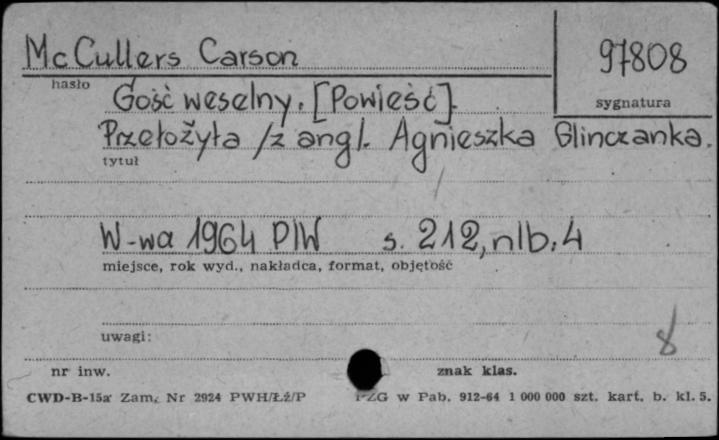 McCullers Carson
97808
hasło
Gość weselny. [Powieść].
sygnatura
Przełożyła /z angl. Agnieszka Glinczanka.
tytuł
W-wa 1964 PIW s. 212, nlb. 4
miejsce, rok wyd., nakładca, format, objętość
uwagi:
8
nr inw.
znak klas.
CWD-B-15a Zam. Nr 2924 PWH/Łź/P PZG w Pab. 912-64 1 000 000 szt. kart. b. kl. 5.